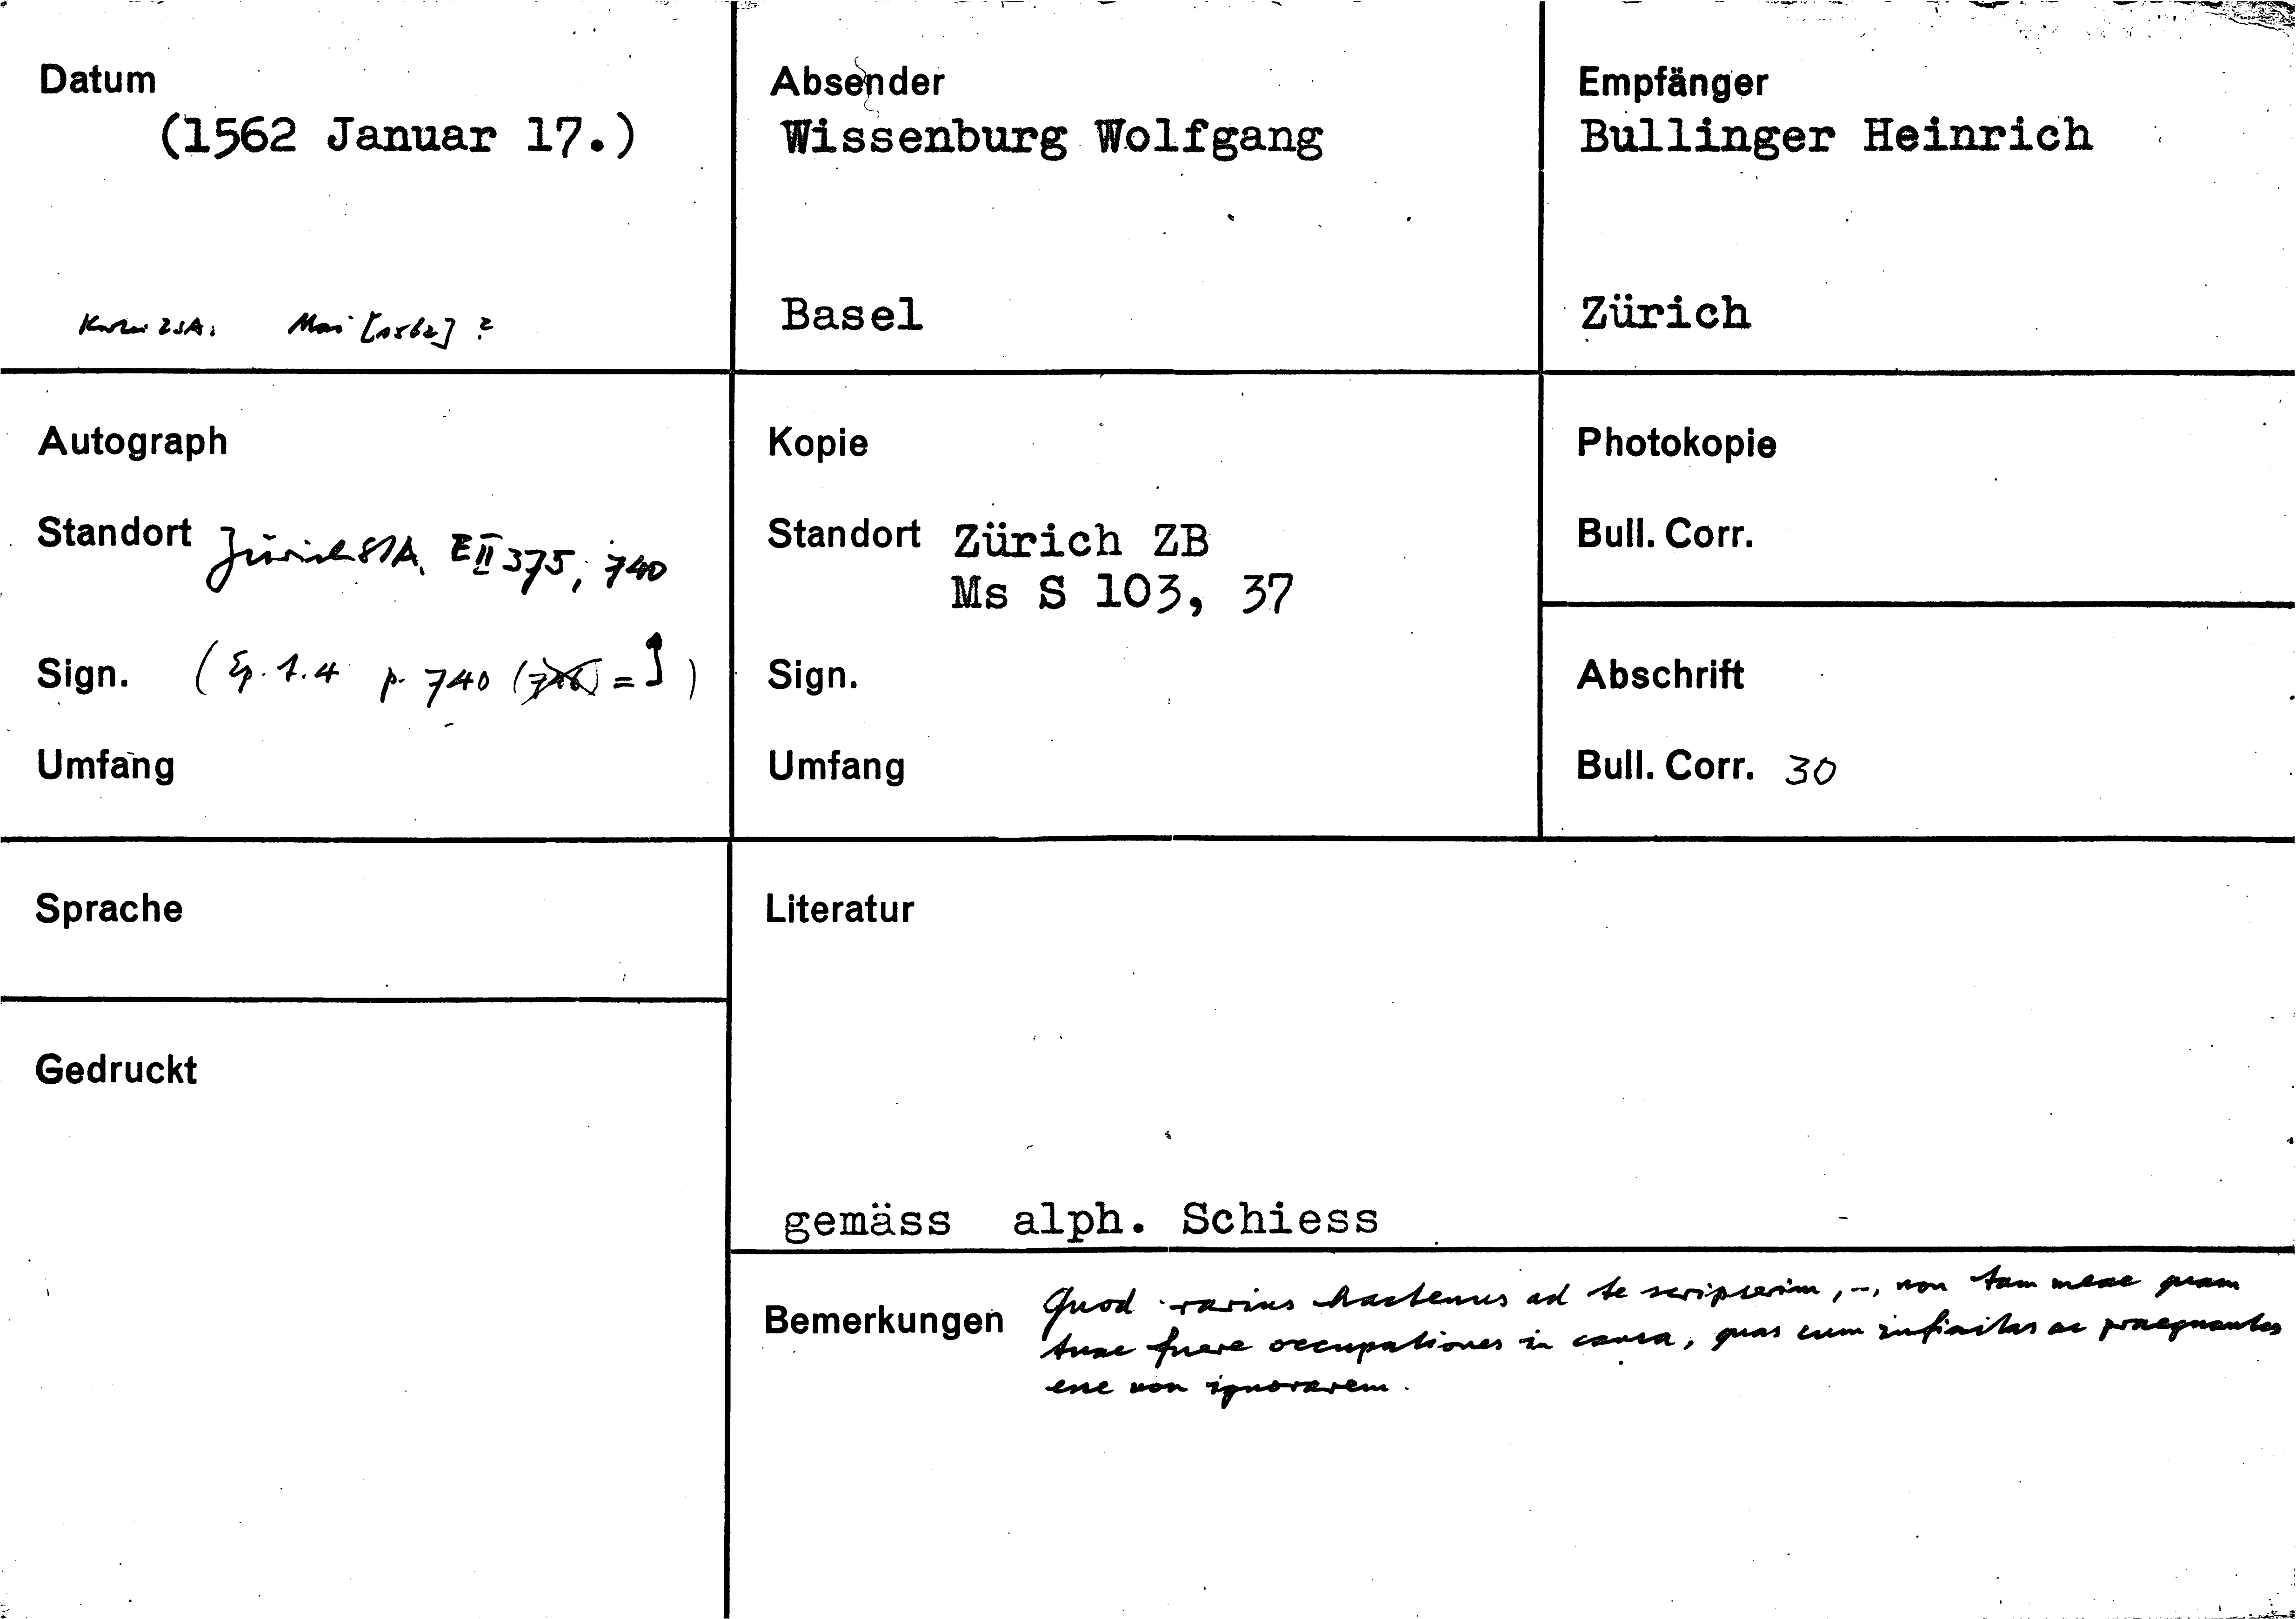 Datum
(1562 Januar 17.)
Kartei ZSA: Mai [1562] ?
Absender
Wissenburg Wolfgang
Basel
Empfänger
Bullinger Heinrich
Zürich
Autograph
Standort Zürich StA, E II 375, 740
Sign. (Ep. t. 4 p. 740 ( = )
Umfang
Kopie
Standort Zürich ZB
Ms S 103, 37
Sign.
Umfang
Photokopie
Bull. Corr.
Abschrift
Bull. Corr. 30
Sprache
Gedruckt
Literatur
gemäss alph. Schiess
Bemerkungen Quod rarius hactenus ad te scripserim, -, non tam meae quam
tuae fuere occupationes in causa, quas cum infinitas ac praegnantes
esse non ignorarem.